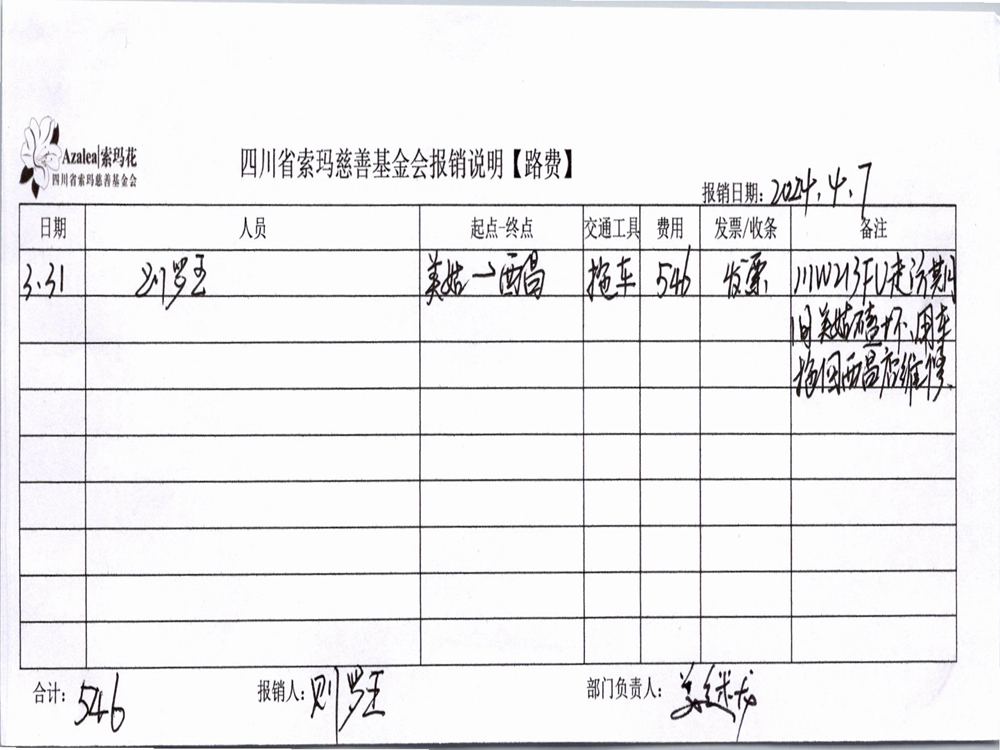 Azalea|索玛花
四川省索玛慈善基金会
四川省索玛慈善基金会报销说明【路费】
报销日期: 2024.4.7
日期 人员 起点-终点 交通工具 费用 发票/收条 备注
3.31 则罗王 美姑→西昌 拖车 546 发票 川W213FU走访期
间美姑碰坏、用车
拖回西昌店维修、
合计: 546 报销人: 则罗王 部门负责人: